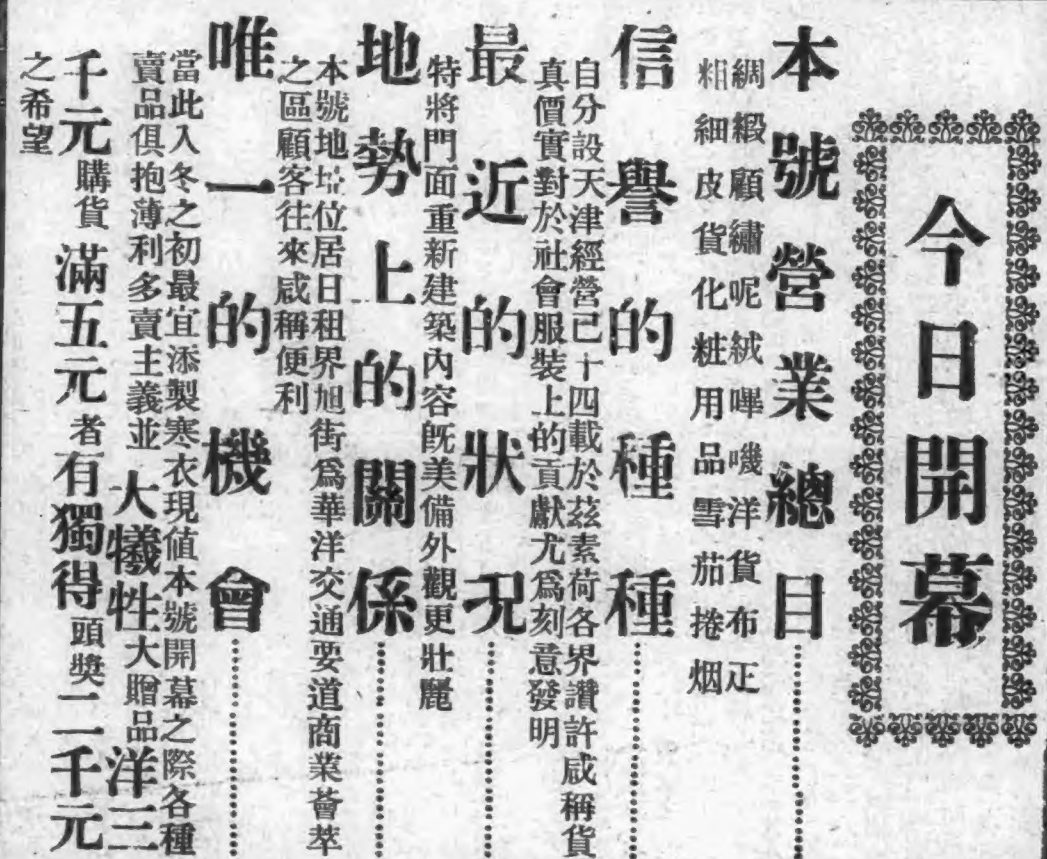 今日開幕
本號營業總目
綢緞顧繡呢絨嗶嘰洋貨布疋
粗細皮貨化粧用品雪茄捲烟
信譽的種種
自分設天津經營已十四載於茲素荷各界讚許咸稱貨
真價實對於社會服裝上的貢獻尤爲刻意發明
最近的狀況
特將門面重新建築內容旣美備外觀更壯麗
地勢上的關係
本號地址位居日租界旭街爲華洋交通要道商業薈萃
之區顧客往來咸稱便利
唯一的機會
當此入冬之初最宜添製寒衣現値本號開幕之際各種
賣品俱抱薄利多賣主義並大犧牲大贈品洋三
千元購貨滿五元者有獨得頭獎二千元
之希望